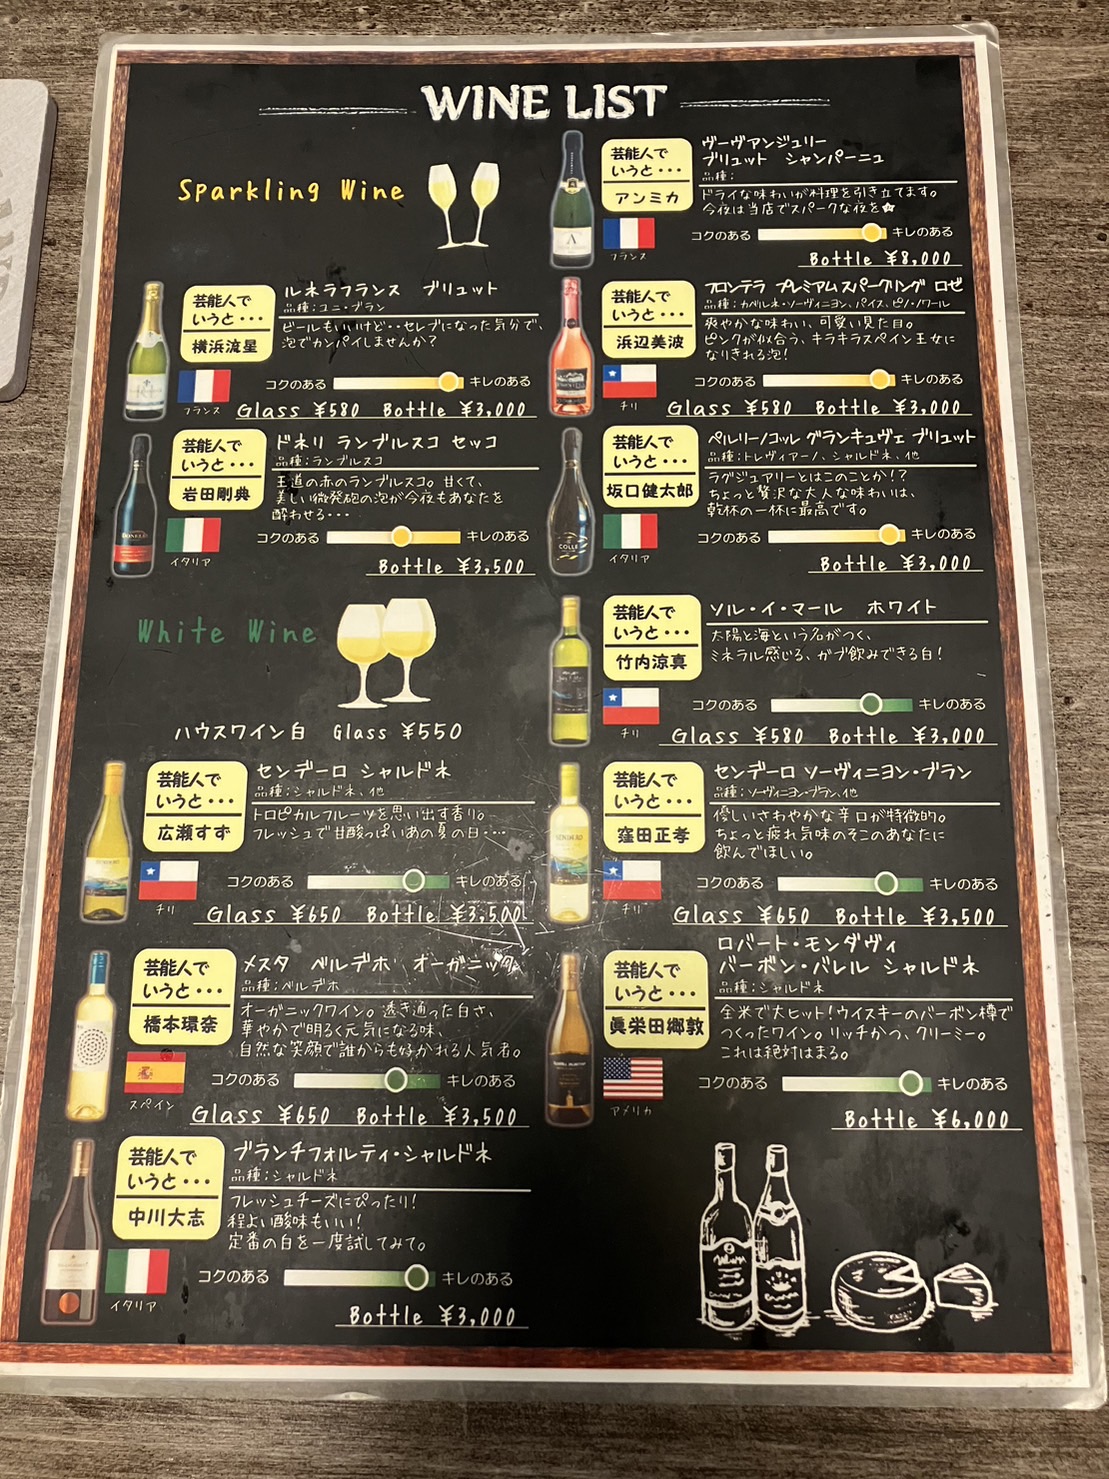 WINE LIST
Sparkling Wine
芸能人で
いうと・・・
アンミカ
ヴーヴアンジュリー
ブリュット シャンパーニュ
品種：
ドライな味わいが料理を引き立てます。
今夜は当店でスパークな夜を☆
フランス
コクのある キレのある
Bottle ¥8,000
芸能人で
いうと・・・
横浜流星
ルネラフランス ブリュット
品種：ユニ・ブラン
ビールもいいけど・・セレブになった気分で、
泡でカンパイしませんか？
フランス
コクのある キレのある
Glass ¥580 Bottle ¥3,000
芸能人で
いうと・・・
浜辺美波
フロンテラ プレミアムスパークリング ロゼ
品種：カベルネ・ソーヴィニヨン、パイス、ピノ・ノワール
爽やかな味わい、可愛い見た目。
ピンクが似合う、キラキラスペイン王女に
なりきれる泡！
チリ
コクのある キレのある
Glass ¥580 Bottle ¥3,000
芸能人で
いうと・・・
岩田剛典
ドネリ ランブルスコ セッコ
品種：ランブルスコ
王道の赤のランブルスコ。甘くて、
美しい微発砲の泡が今夜もあなたを
酔わせる・・・
イタリア
コクのある キレのある
Bottle ¥3,500
芸能人で
いうと・・・
坂口健太郎
ペルリーノコッレ グランキュヴェ ブリュット
品種：トレヴィアーノ、シャルドネ、他
ラグジュアリーとはこのことか！？
ちょっと贅沢な大人な味わいは、
乾杯の一杯に最高です。
COLLE
イタリア
コクのある キレのある
Bottle ¥3,000
White Wine
ハウスワイン白 Glass ¥550
芸能人で
いうと・・・
竹内涼真
ソル・イ・マール ホワイト
太陽と海という名がつく、
ミネラル感じる、ガブ飲みできる白！
チリ
コクのある キレのある
Glass ¥580 Bottle ¥3,000
芸能人で
いうと・・・
広瀬すず
センデーロ シャルドネ
品種：シャルドネ、他
トロピカルフルーツを思い出す香り。
フレッシュで甘酸っぱいあの夏の日・・・・
チリ
コクのある キレのある
Glass ¥650 Bottle ¥3,500
芸能人で
いうと・・・
窪田正孝
センデーロ ソーヴィニヨン・ブラン
品種：ソーヴィニヨン・ブラン、他
優しいさわやかな辛口が特徴的。
ちょっと疲れ気味のそこのあなたに
飲んでほしい。
チリ
コクのある キレのある
Glass ¥650 Bottle ¥3,500
芸能人で
いうと・・・
橋本環奈
メスタ ベルデホ オーガニック
品種：ベルデホ
オーガニックワイン。透き通った白さ、
華やかで明るく元気になる味、
自然な笑顔で誰からも好かれる人気者。
スペイン
コクのある キレのある
Glass ¥650 Bottle ¥3,500
芸能人で
いうと・・・
眞栄田郷敦
ロバート・モンダヴィ
バーボン・バレル シャルドネ
品種：シャルドネ
全米で大ヒット！ウイスキーのバーボン樽で
つくったワイン。リッチかつ、クリーミー。
これは絶対はまる。
アメリカ
コクのある キレのある
Bottle ¥6,000
芸能人で
いうと・・・
中川大志
ブランチフォルティ・シャルドネ
品種：シャルドネ
フレッシュチーズにぴったり！
程よい酸味もいい！
定番の白を一度試してみて。
イタリア
コクのある キレのある
Bottle ¥3,000